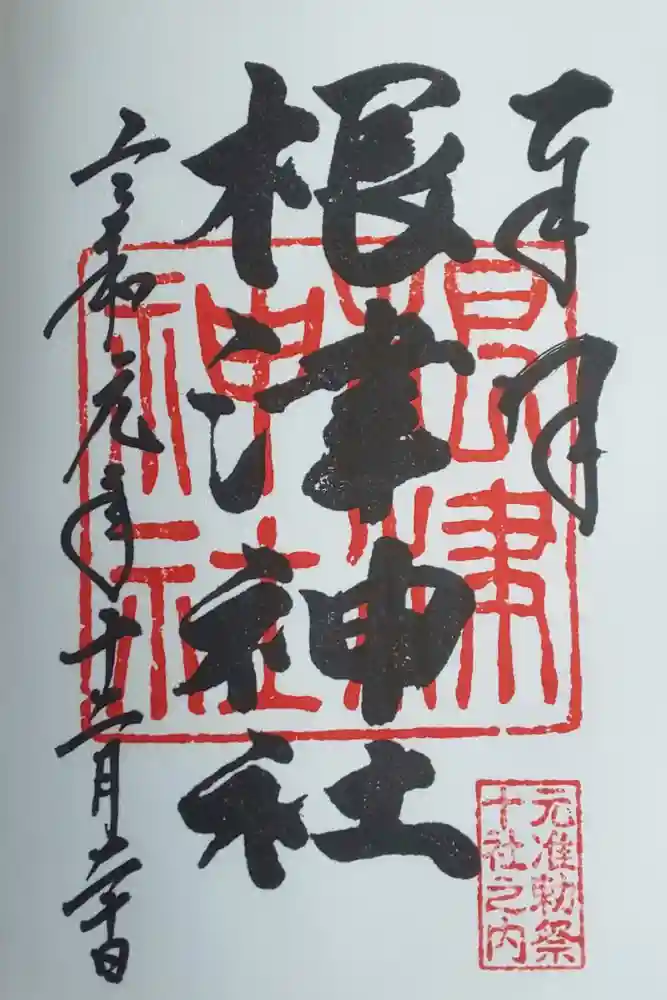 奉拝
根津神社
根津
神社
令和元年十二月二十日
元准勅祭
十社之内